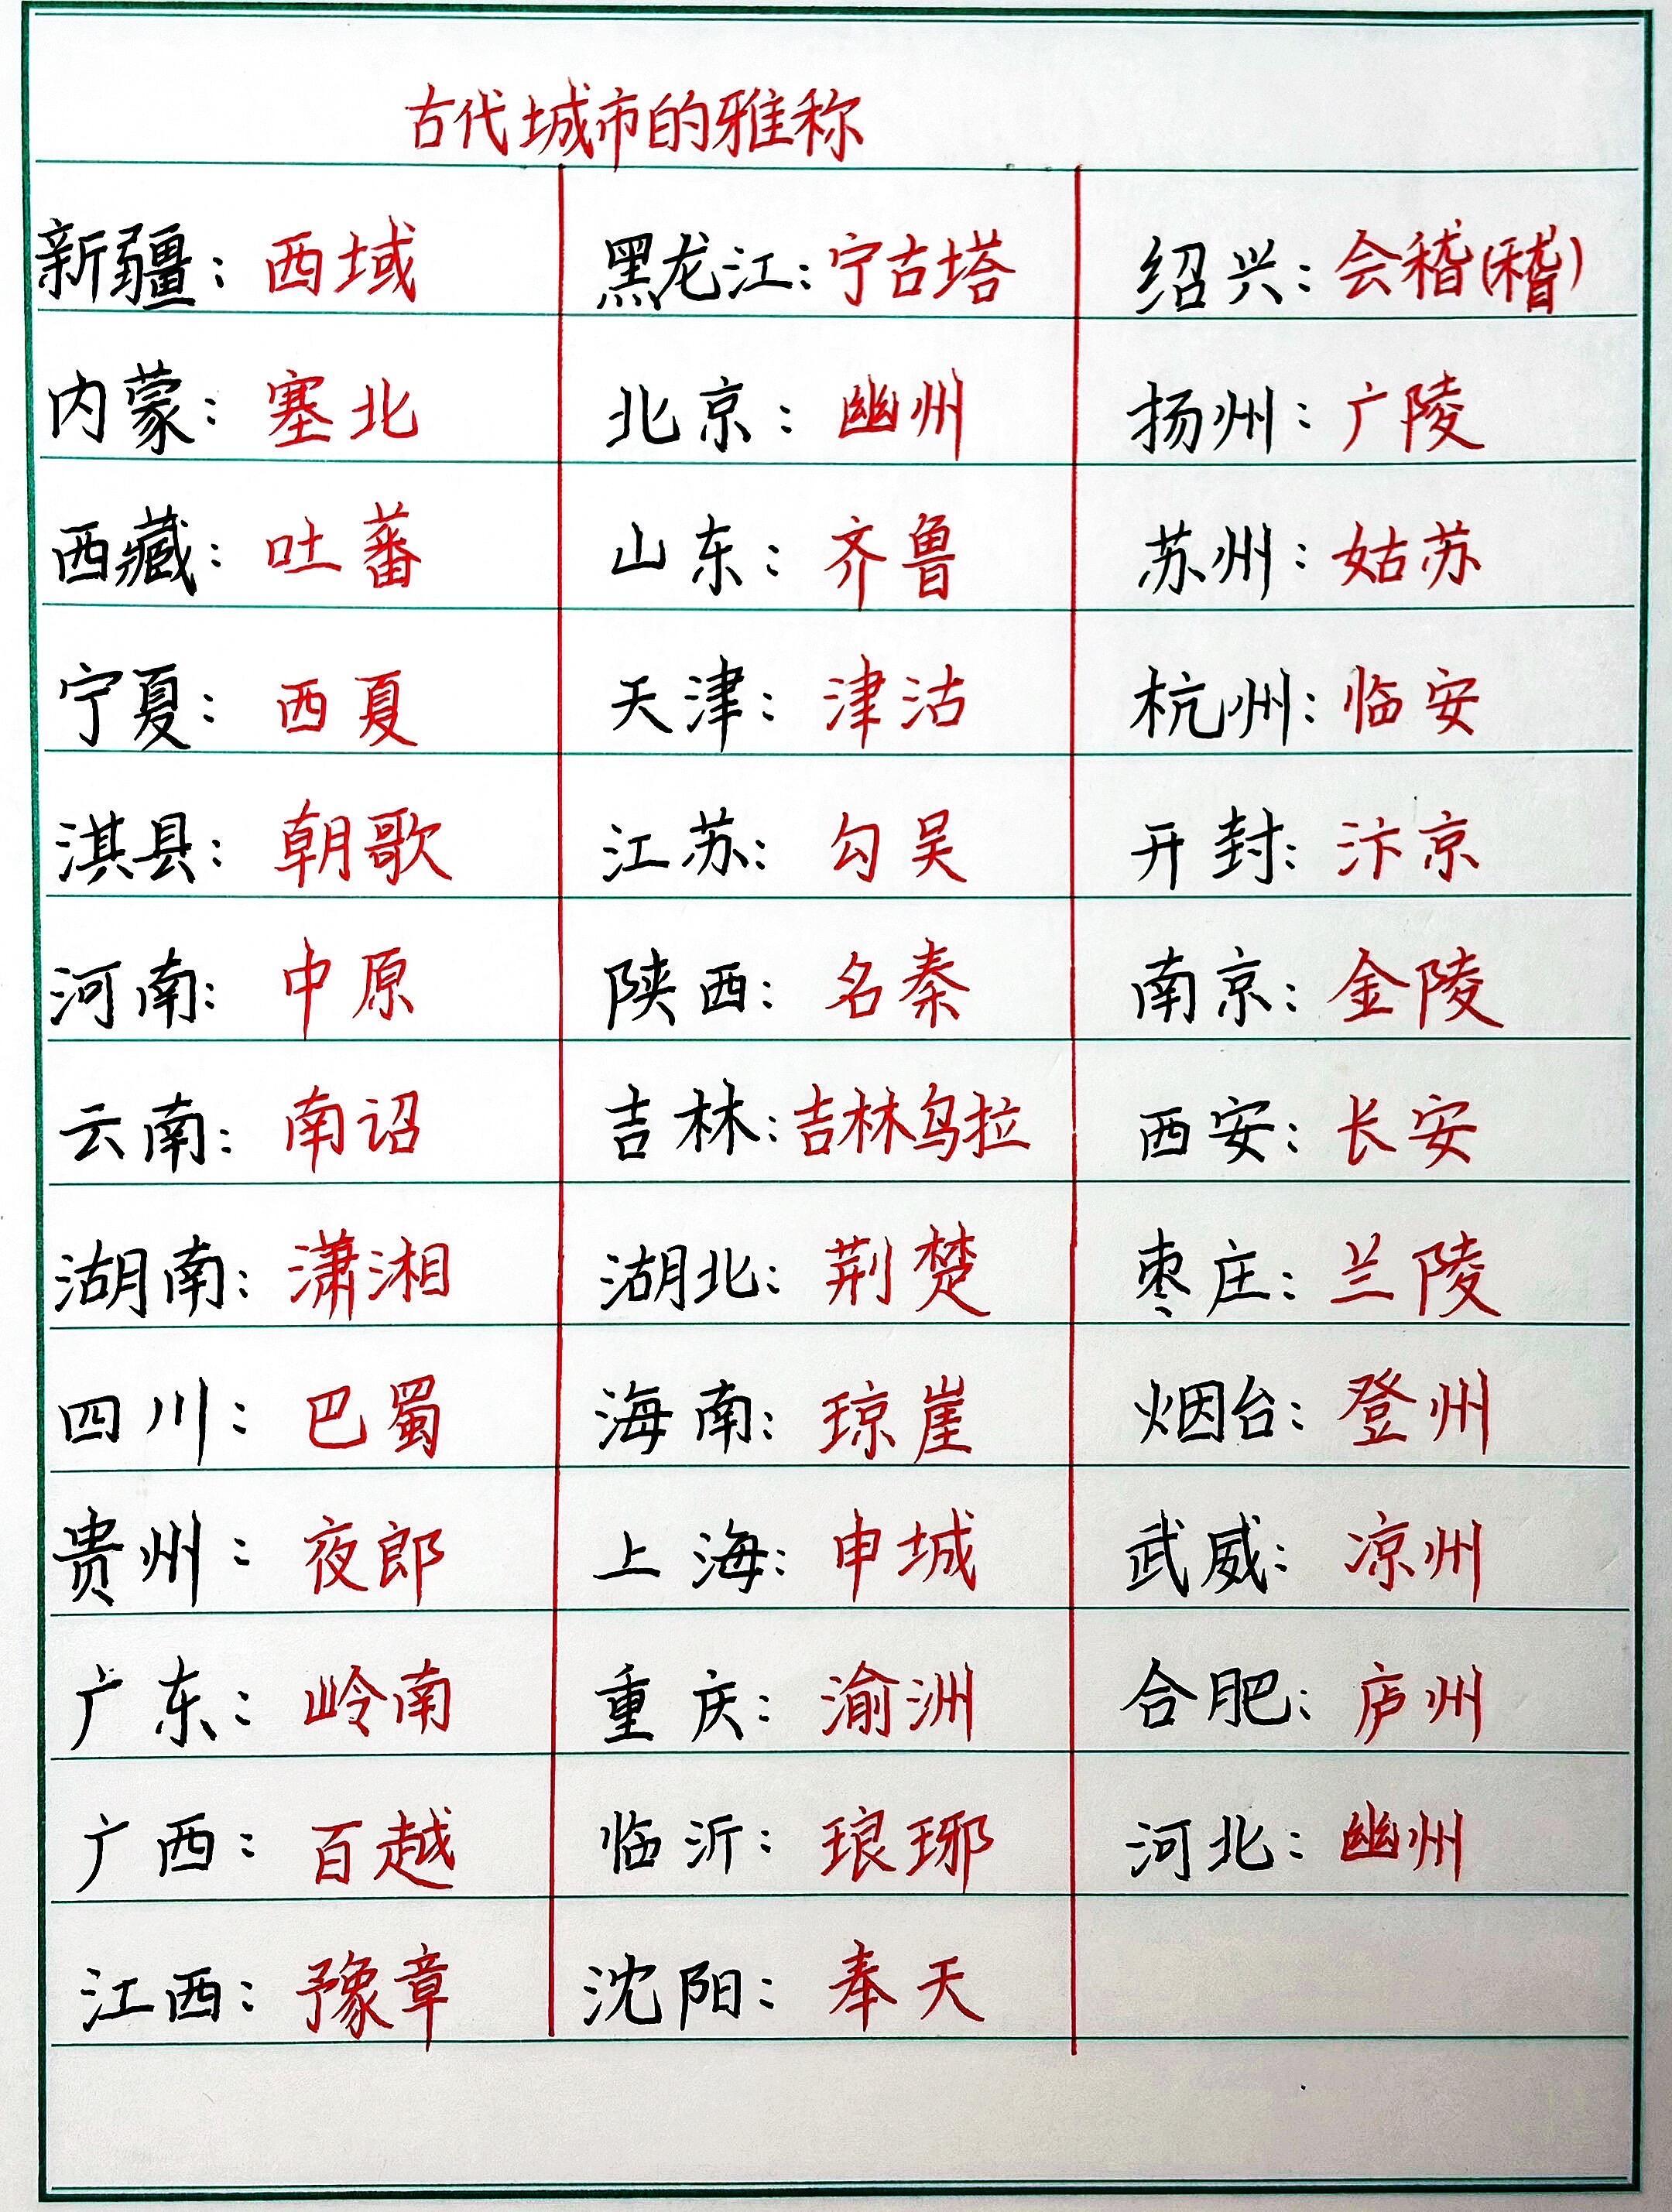 古代城市的雅称
新疆：西域 黑龙江：宁古塔 绍兴：会稽(稽)
内蒙：塞北 北京：幽州 扬州：广陵
西藏：吐蕃 山东：齐鲁 苏州：姑苏
宁夏：西夏 天津：津沽 杭州：临安
淇县：朝歌 江苏：勾吴 开封：汴京
河南：中原 陕西：名秦 南京：金陵
云南：南诏 吉林：吉林乌拉 西安：长安
湖南：潇湘 湖北：荆楚 枣庄：兰陵
四川：巴蜀 海南：琼崖 烟台：登州
贵州：夜郎 上海：申城 武威：凉州
广东：岭南 重庆：渝洲 合肥：庐州
广西：百越 临沂：琅琊 河北：幽州
江西：豫章 沈阳：奉天